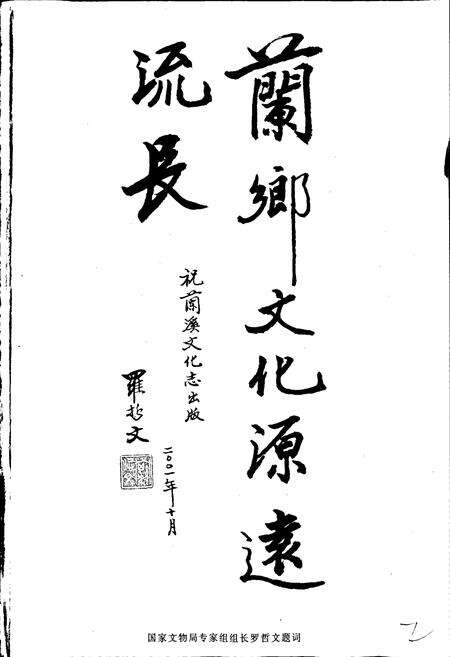 蘭鄉文化源遠
流長
祝蘭溪文化志出版
羅哲文
二〇〇一年十月
国家文物局专家组组长罗哲文题词